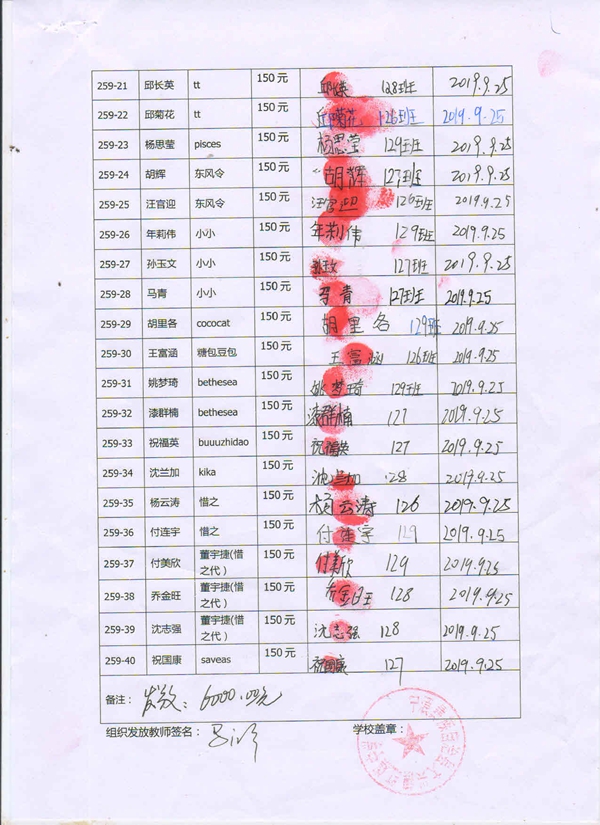 259-21 邱长英 tt 150元 邱长英 128班 2019.9.25
259-22 邱菊花 tt 150元 邱菊花 126班 2019.9.25
259-23 杨思莹 pisces 150元 杨思莹 129班 2019.9.25
259-24 胡辉 东风令 150元 胡辉 127班 2019.9.25
259-25 汪官迎 东风令 150元 汪官迎 126班 2019.9.25
259-26 年莉伟 小小 150元 年莉伟 129班 2019.9.25
259-27 孙玉文 小小 150元 孙玉文 127班 2019.9.25
259-28 马青 小小 150元 马青 127班 2019.9.25
259-29 胡里各 cococat 150元 胡里各 129班 2019.9.25
259-30 王富涵 糖包豆包 150元 王富涵 126班 2019.9.25
259-31 姚梦琦 bethesea 150元 姚梦琦 129班 2019.9.25
259-32 漆群楠 bethesea 150元 漆群楠 127 2019.9.25
259-33 祝福英 buuuzhidao 150元 祝福英 127 2019.9.25
259-34 沈兰加 kika 150元 沈兰加 128 2019.9.25
259-35 杨云涛 惜之 150元 杨云涛 126 2019.9.25
259-36 付连宇 惜之 150元 付连宇 129 2019.9.25
259-37 付美欣 董宇捷(惜之代) 150元 付美欣 129 2019.9.25
259-38 乔金旺 董宇捷(惜之代) 150元 乔金旺 128 2019.9.25
259-39 沈志强 董宇捷(惜之代) 150元 沈志强 128 2019.9.25
259-40 祝国康 saveas 150元 祝国康 127 2019.9.25
备注: 发放:6000.00元
组织发放教师签名: 学校盖章: